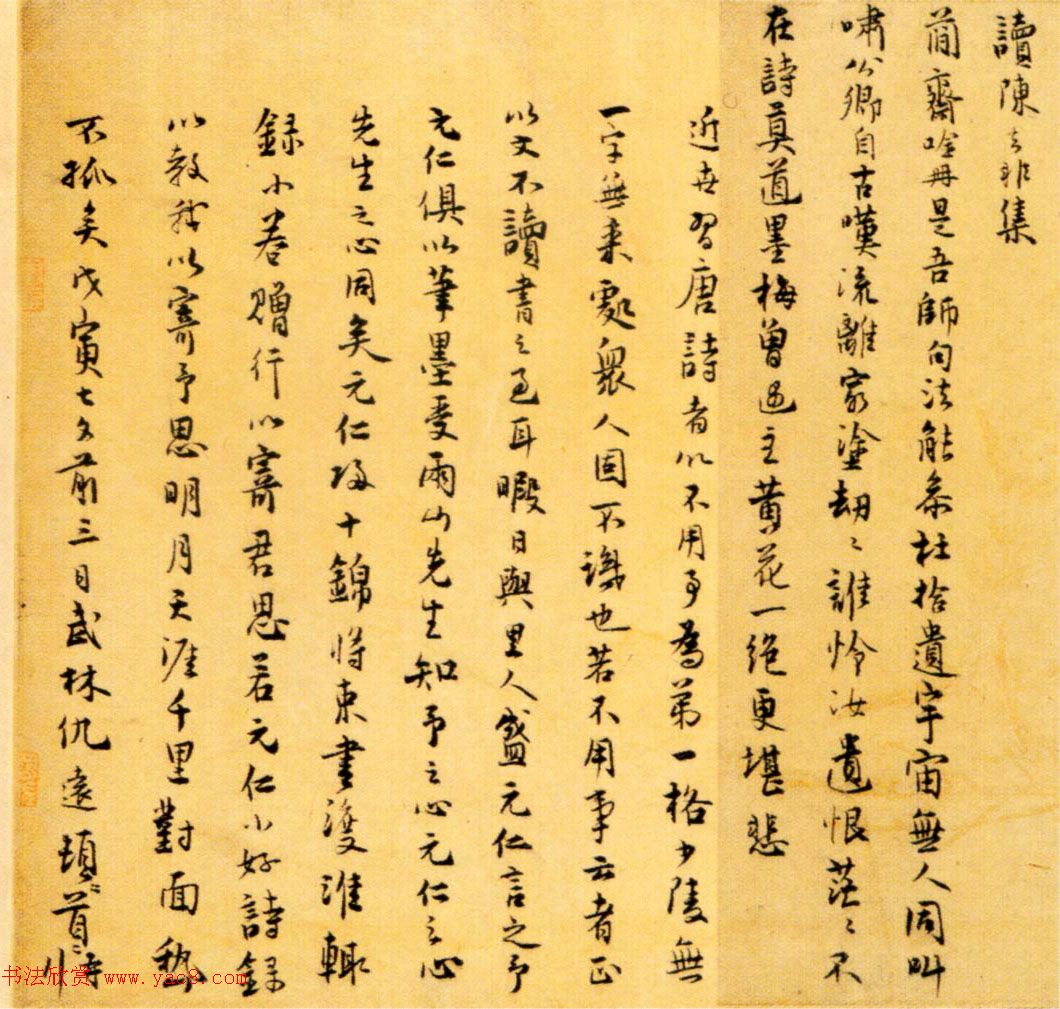 讀陳去非集
簡齋吟冊是吾師句法能參杜拾遺宇宙無人同叫
嘯公卿自古嘆流離窮塗劫〻誰怜汝遺恨茫〻不
在詩莫道墨梅曾遇主黄花一絕更堪悲
近世習唐詩者以不用事為第一格少陵無
一字無来處衆人固不識也若不用事云者正
以文不讀書之過耳暇日與里人盛元仁言之予
元仁俱以筆墨受雨山先生知予之心元仁之心
先生之心同矣元仁歸十錦將束書渡淮輒
錄小卷贈行以寄君思若元仁以好詩錄
以教我以寄予思明月天涯千里對面我
不孤矣戊寅七夕前三日武林仇遠頓〻首〻
书法欣赏 www.yac8.com